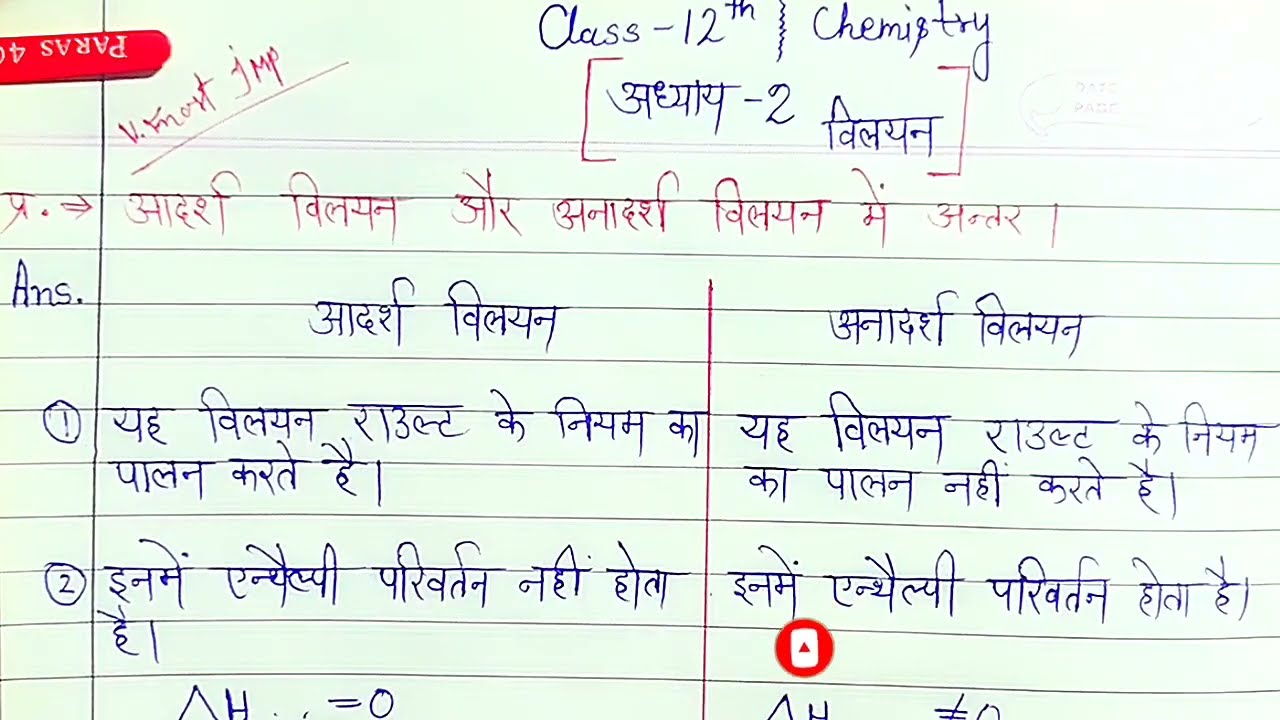 PARAS 40
Class-12th Chemistry
V. most Imp
[अध्याय-2 विलयन]
DATE
PAGE
प्र.⇒ आदर्श विलयन और अनादर्श विलयन में अन्तर।
Ans.
आदर्श विलयन
अनादर्श विलयन
① यह विलयन राउल्ट के नियम का
पालन करते है।
यह विलयन राउल्ट के नियम
का पालन नहीं करते है।
② इनमें एन्थैल्पी परिवर्तन नहीं होता
है।
इनमें एन्थैल्पी परिवर्तन होता है।
ΔH =0
ΔH ≠0